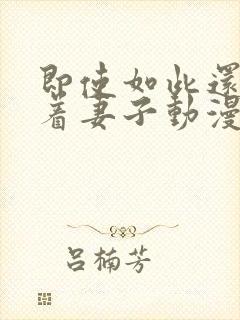 即使如此還
着妻子動漫
呂楠芳